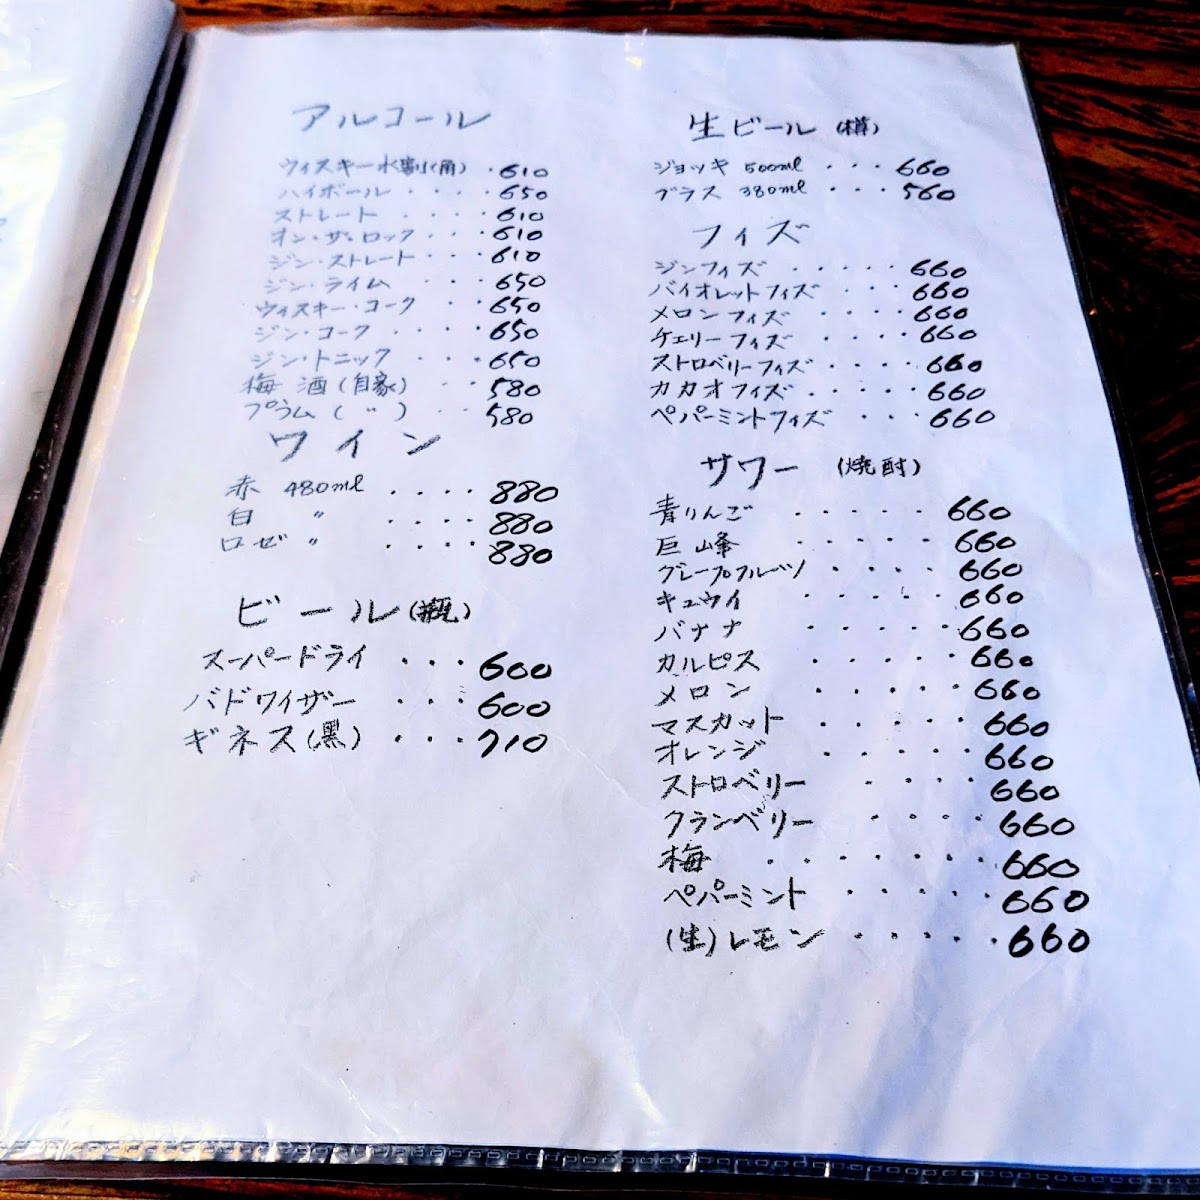 アルコール
ウィスキー水割(角) ・610
ハイボール ・・・・650
ストレート ・・・・610
オン・ザ・ロック ・・・610
ジン・ストレート ・・・610
ジン・ライム ・・・・650
ウィスキー・コーク ・・・650
ジン・コーク ・・・・650
ジン・トニック ・・・650
梅酒(自家) ・・580
プラム(〃) ・・580
ワイン
赤 480ml ・・・・880
白 〃 ・・・・880
ロゼ 〃 ・・・・880
ビール(瓶)
スーパードライ ・・・600
バドワイザー ・・・600
ギネス(黒) ・・・710
生ビール(樽)
ジョッキ 500ml ・・・660
グラス 380ml ・・・560
フィズ
ジンフィズ ・・・・・660
バイオレットフィズ ・・・660
メロンフィズ ・・・・660
チェリーフィズ ・・・・660
ストロベリーフィズ・・・・660
カカオフィズ・・・・・660
ペパーミントフィズ ・・・660
サワー (焼酎)
青りんご ・・・・・660
巨峰 ・・・・・660
グレープフルーツ ・・・・660
キュウイ ・・・・・660
バナナ ・・・・・660
カルピス ・・・・・660
メロン ・・・・・660
マスカット ・・・・・660
オレンジ ・・・・・660
ストロベリー ・・・・660
クランベリー ・・・・660
梅 ・・・・・・・660
ペパーミント ・・・・・660
(生)レモン ・・・・・・660